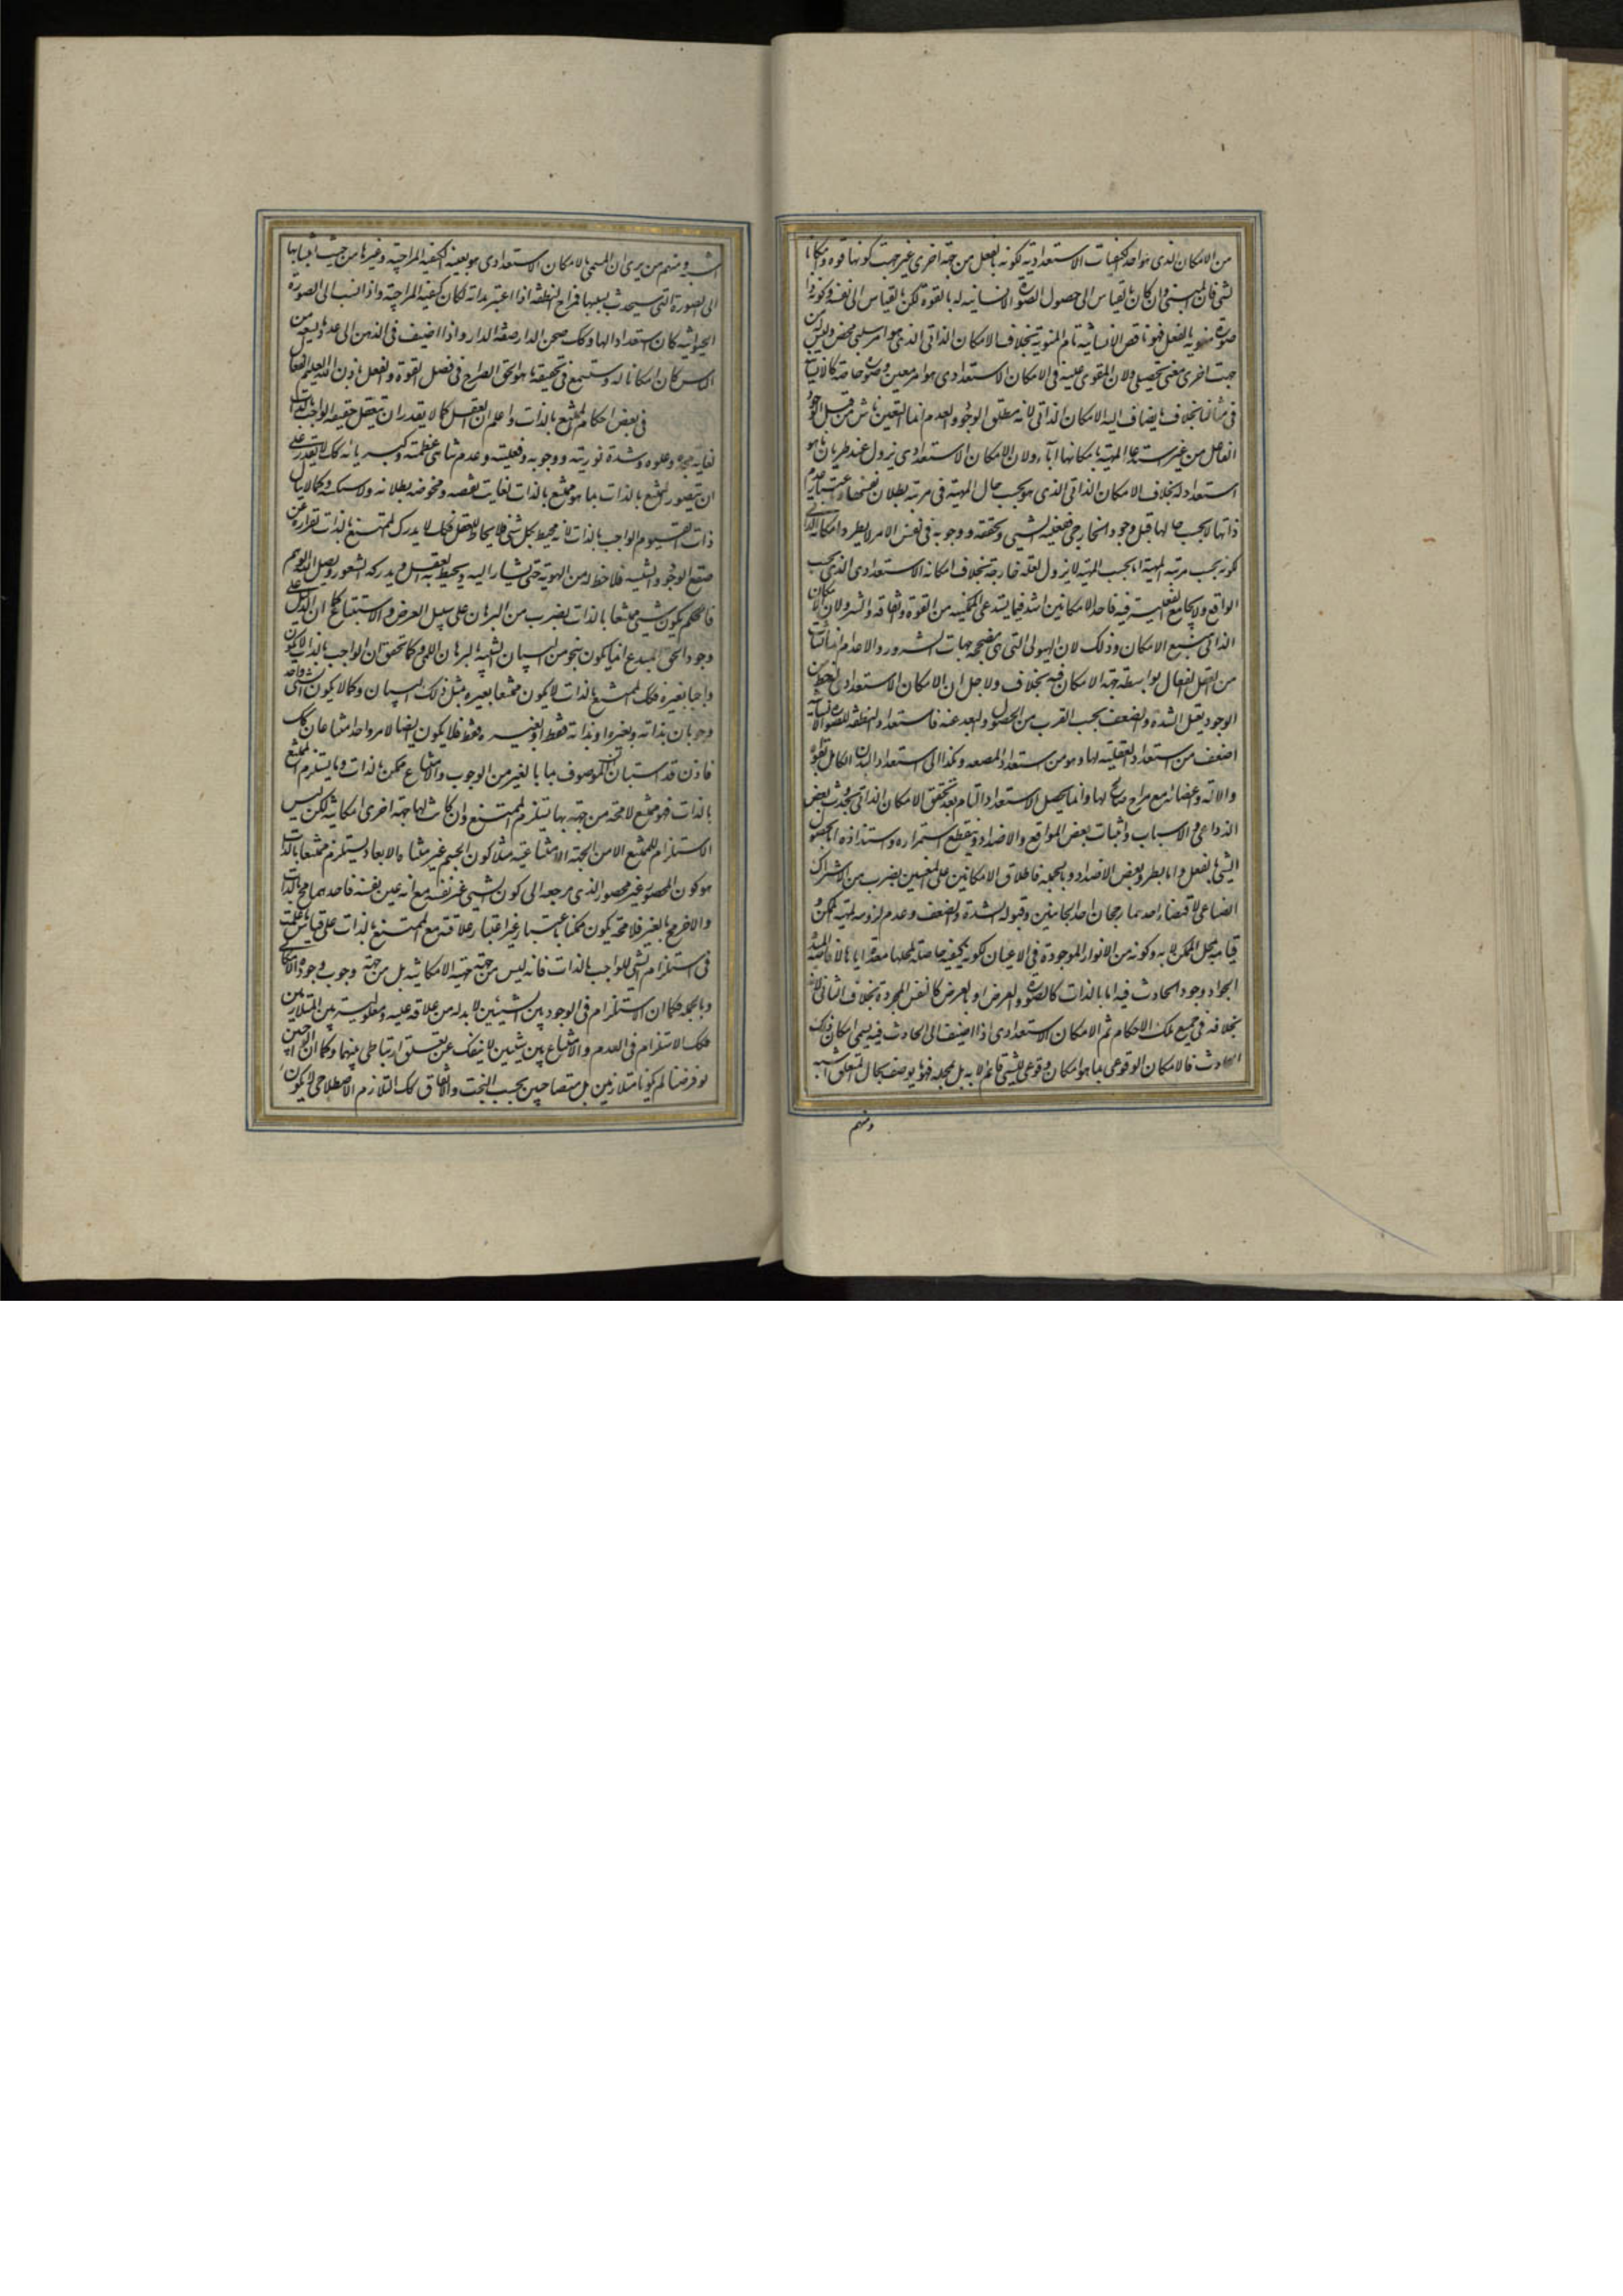 من الامكان الذى هو احد الكيفيات الاستعدادية لكونه بالفعل من جهة اخرى غير جهة كونها قوة و امكانا
لشى فان المنى وان كان بالقياس الى حصول الصورة الانسانيه له بالقوة لكن بالقياس الى نفسه وكونه ذا
صورة منوية بالفعل فهو ناقص الانسانية تام المنوية بخلاف الامكان الذاتى الذى هو امر سلبى محض وليس له من
جهت اخرى معنى تحصيلى ولان المقوى عليه فى الامكان الاستعدادى هو امر معين وصورة خاصة كالانسانية
فى مثالنا بخلاف ما يضاف اليه الامكان الذاتى لانه مطلق الوجود والعدم انما التعين ناش من قبل الوجود
الفاعل من غير استدعاء المهية بامكانها اياه ولان الامكان الاستعدادى يزول عند طريان ما هو
استعداد له بخلاف الامكان الذاتى الذى هو بحسب حال المهية فى مرتبة بطلان نفسها باعتبار عدم
ذاتها لا بحسب حالها قبل وجود الخارجى ففعلية الشيى وتحققه ووجوبه فى نفس الامر لا يطرد امكانه الذاتى
كونه بحسب مرتبة المهية اما بحسب المهية لا يزول لعلة خارجة بخلاف امكانه الاستعدادى الذى بحسب
الواقع ولا يجامع الفعلية فيه فاحد الامكانين اشد فيما يستدعى الممكنية من القوة والفاقة والشر ولان الامكان
الذاتى منبع الامكان وذلك لان الهيولى التى هى مصححة جهات الشرور والاعدام انما نشأت
من العقل الفعال بواسطة جهة الامكان فيه بخلاف ولاجل ان الامكان الاستعدادى له حظ من
الوجود يقبل الشدة والضعف بحسب القرب من الحصول والبعد عنه فاستعداد النطفة للصورة الانسانية
اضعف من استعداد العلقة لها وهو من استعداد المضغة وهكذا الى استعداد البدن الكامل بقواه
والاته واعضائه مع مزاج صالح لها وانما يحصل الاستعداد التام بعد تحقق الامكان الذاتى بحدوث بعض
الدواعى و الاسباب واثبات بعض الموانع والاضداد وينقطع استمراره وستناده اما بحصول
الشيى بالفعل واما بطرو بعض الاضداد وبالجملة فاطلاق الامكانين على المعنيين بضرب من الاشتراك
الصناعى لاقتضاء احدهما رجحان احد الجانبين وقبوله الشدة والضعف وعدم لزومه لمهية الممكن و
قيامه بمحل الممكن لا به وكونه من الانوار الموجودة فى الاعيان لكونه كيفية حاصلة لمحلها معدة اياها لافاضة المبدء
الجواد وجود الحادث فيه اما بالذات كالصورة والعرض او بالعرض كالنفس المجردة بخلاف الثانى لانه
بخلافه فى جميع تلك الاحكام ثم الامكان الاستعدادى اذا اضيف الى الحادث فيه يسمى امكان ذلك
الحادث فالامكان الوقوعى بما هو امكان وقوعى للشيى قائم لا به بل بمحله فهو بوصف بحال المتعلق اشبه
ومنهم
اشبه ومنهم من يرى ان المسمى بالامكان الاستعدادى هو بعينه الكيفية المزاجية وغيرها من حيث انتسابها
الى الصورة التى سيحدث بسببها فمزاج النطفة اذا اعتبر بذاته لكان كيفية المزاجية واذا انتسب الى الصورة
الحيوانية كان استعدادا لها وكك صحن الدار صفة الدار واذا اضيف فى الذهن الى عدد ما يسعه من
الناس كان امكانا له وستسمع فى تحقيقه ما هو الحق الصراح فى فصل القوة والفعل باذن الله العليم الفعال
فى بعض احكام الممتنع بالذات واعلم ان العقل كما لا يقدر ان يتعقل حقيقة الواجب بالذات
لغاية مجده وعلوه وشدة نوريته ووجوبه وفعليته وعدم تناهى عظمته وكبريائه كك لا يقدر على
ان يتصور الممتنع بالذات بما هو ممتنع بالذات لغاية نقصه ومحوضة بطلانه ولاشيئيته وكما لا ينال
ذات القيوم الواجب بالذات لانه محيط بكل شئ فلا يحاط للعقل فكك لا يدرك الممتنع بالذات لفراره عن
صقع الوجود والشيئية فلا حظ له من الهوية حتى يشار اليه ويحيط به العقل ويدركه الشعور ويصل اليه الوهم
فالحكم بكون شيى ممتنعا بالذات بضرب من البرهان على سبيل العرض والاستتباع كما ان الدليل على
وجود الحق المبدع انما يكون بنحو من البيان الشبيه بالبرهان اللمى وكما تحقق ان الواجب بالذات لا يكون
واجبا بغيره فكك الممتنع بالذات لا يكون ممتنعا بغيره بمثل ذلك البيان وكما لا يكون لشئ واحد
وجوبان بذاته وبغيره او بذاته فقط او بغيره فقط فلا يكون ايضا لامر واحد امتناعان كك
فاذن قد استبان ان الموصوف بما بالغير من الوجوب والامتناع ممكن بالذات وما يستلزم الممتنع
بالذات فهو ممتنع لا محة من جهة بها يستلزم الممتنع وان كانت لها جهة اخرى امكانية لكن ليس
الاستلزام للممتنع الا من الجهة الامتناعية مثلا كون الجسم غير متناه الابعاد يستلزم ممتنعا بالذات
هو كون المحصور غير محصور الذى مرجعه الى كون الشيى غير نفسه مع انه عين نفسه فاحدهما مح بالذات
والاخر مح بالغير فلا محة يكون ممكنا باعتبار غير اعتبار علاقته مع الممتنع بالذات على قياس ما علمت
فى استلزام الشى للواجب بالذات فانه ليس من جهة مهيته الامكانية بل من جهة وجوب وجوده الامكانى
وبالجملة فكما ان الاستلزام فى الوجود بين الشيئين لابد له من علاقة علية ومعلولية بين المتلازمين
فكك الاستلزام فى العدم والامتناع بين شيئين لا ينفك عن تعلق ارتباطى بينهما وكما ان الواجبين
لو فرضنا لم يكونا متلازمين بل متصاحبين بحسب البخت والاتفاق كك التلازم الاصطلاحى لا يكون